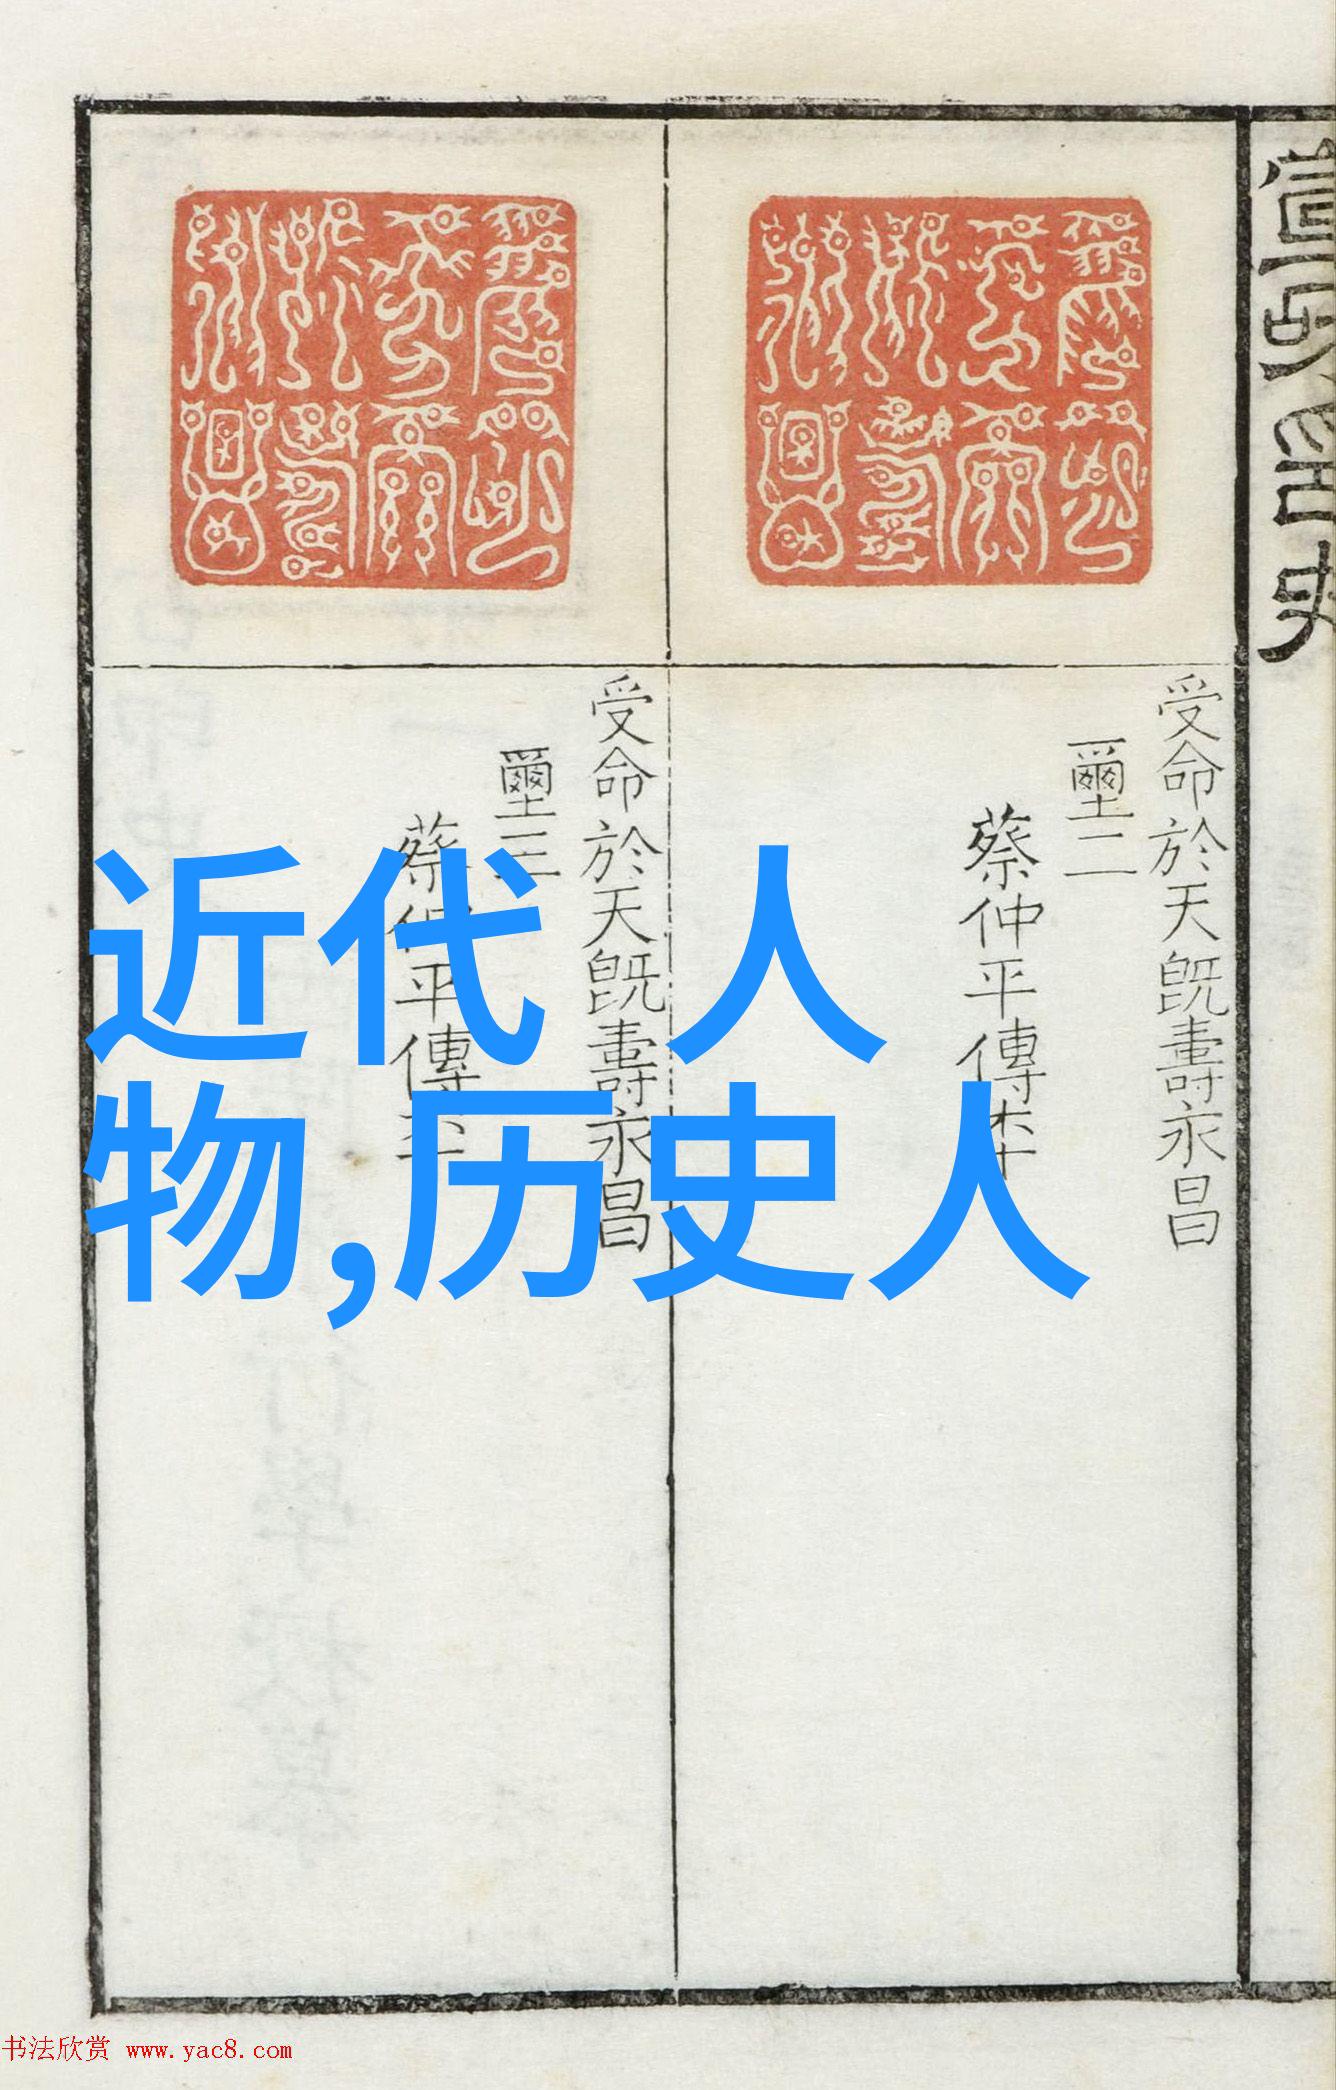 受命於天既壽永昌
璽二
蔡仲平傳本
受命於天既壽永昌
璽三
蔡仲平傳本
近代 人
物,历史人
书法欣赏 www.yac8.com